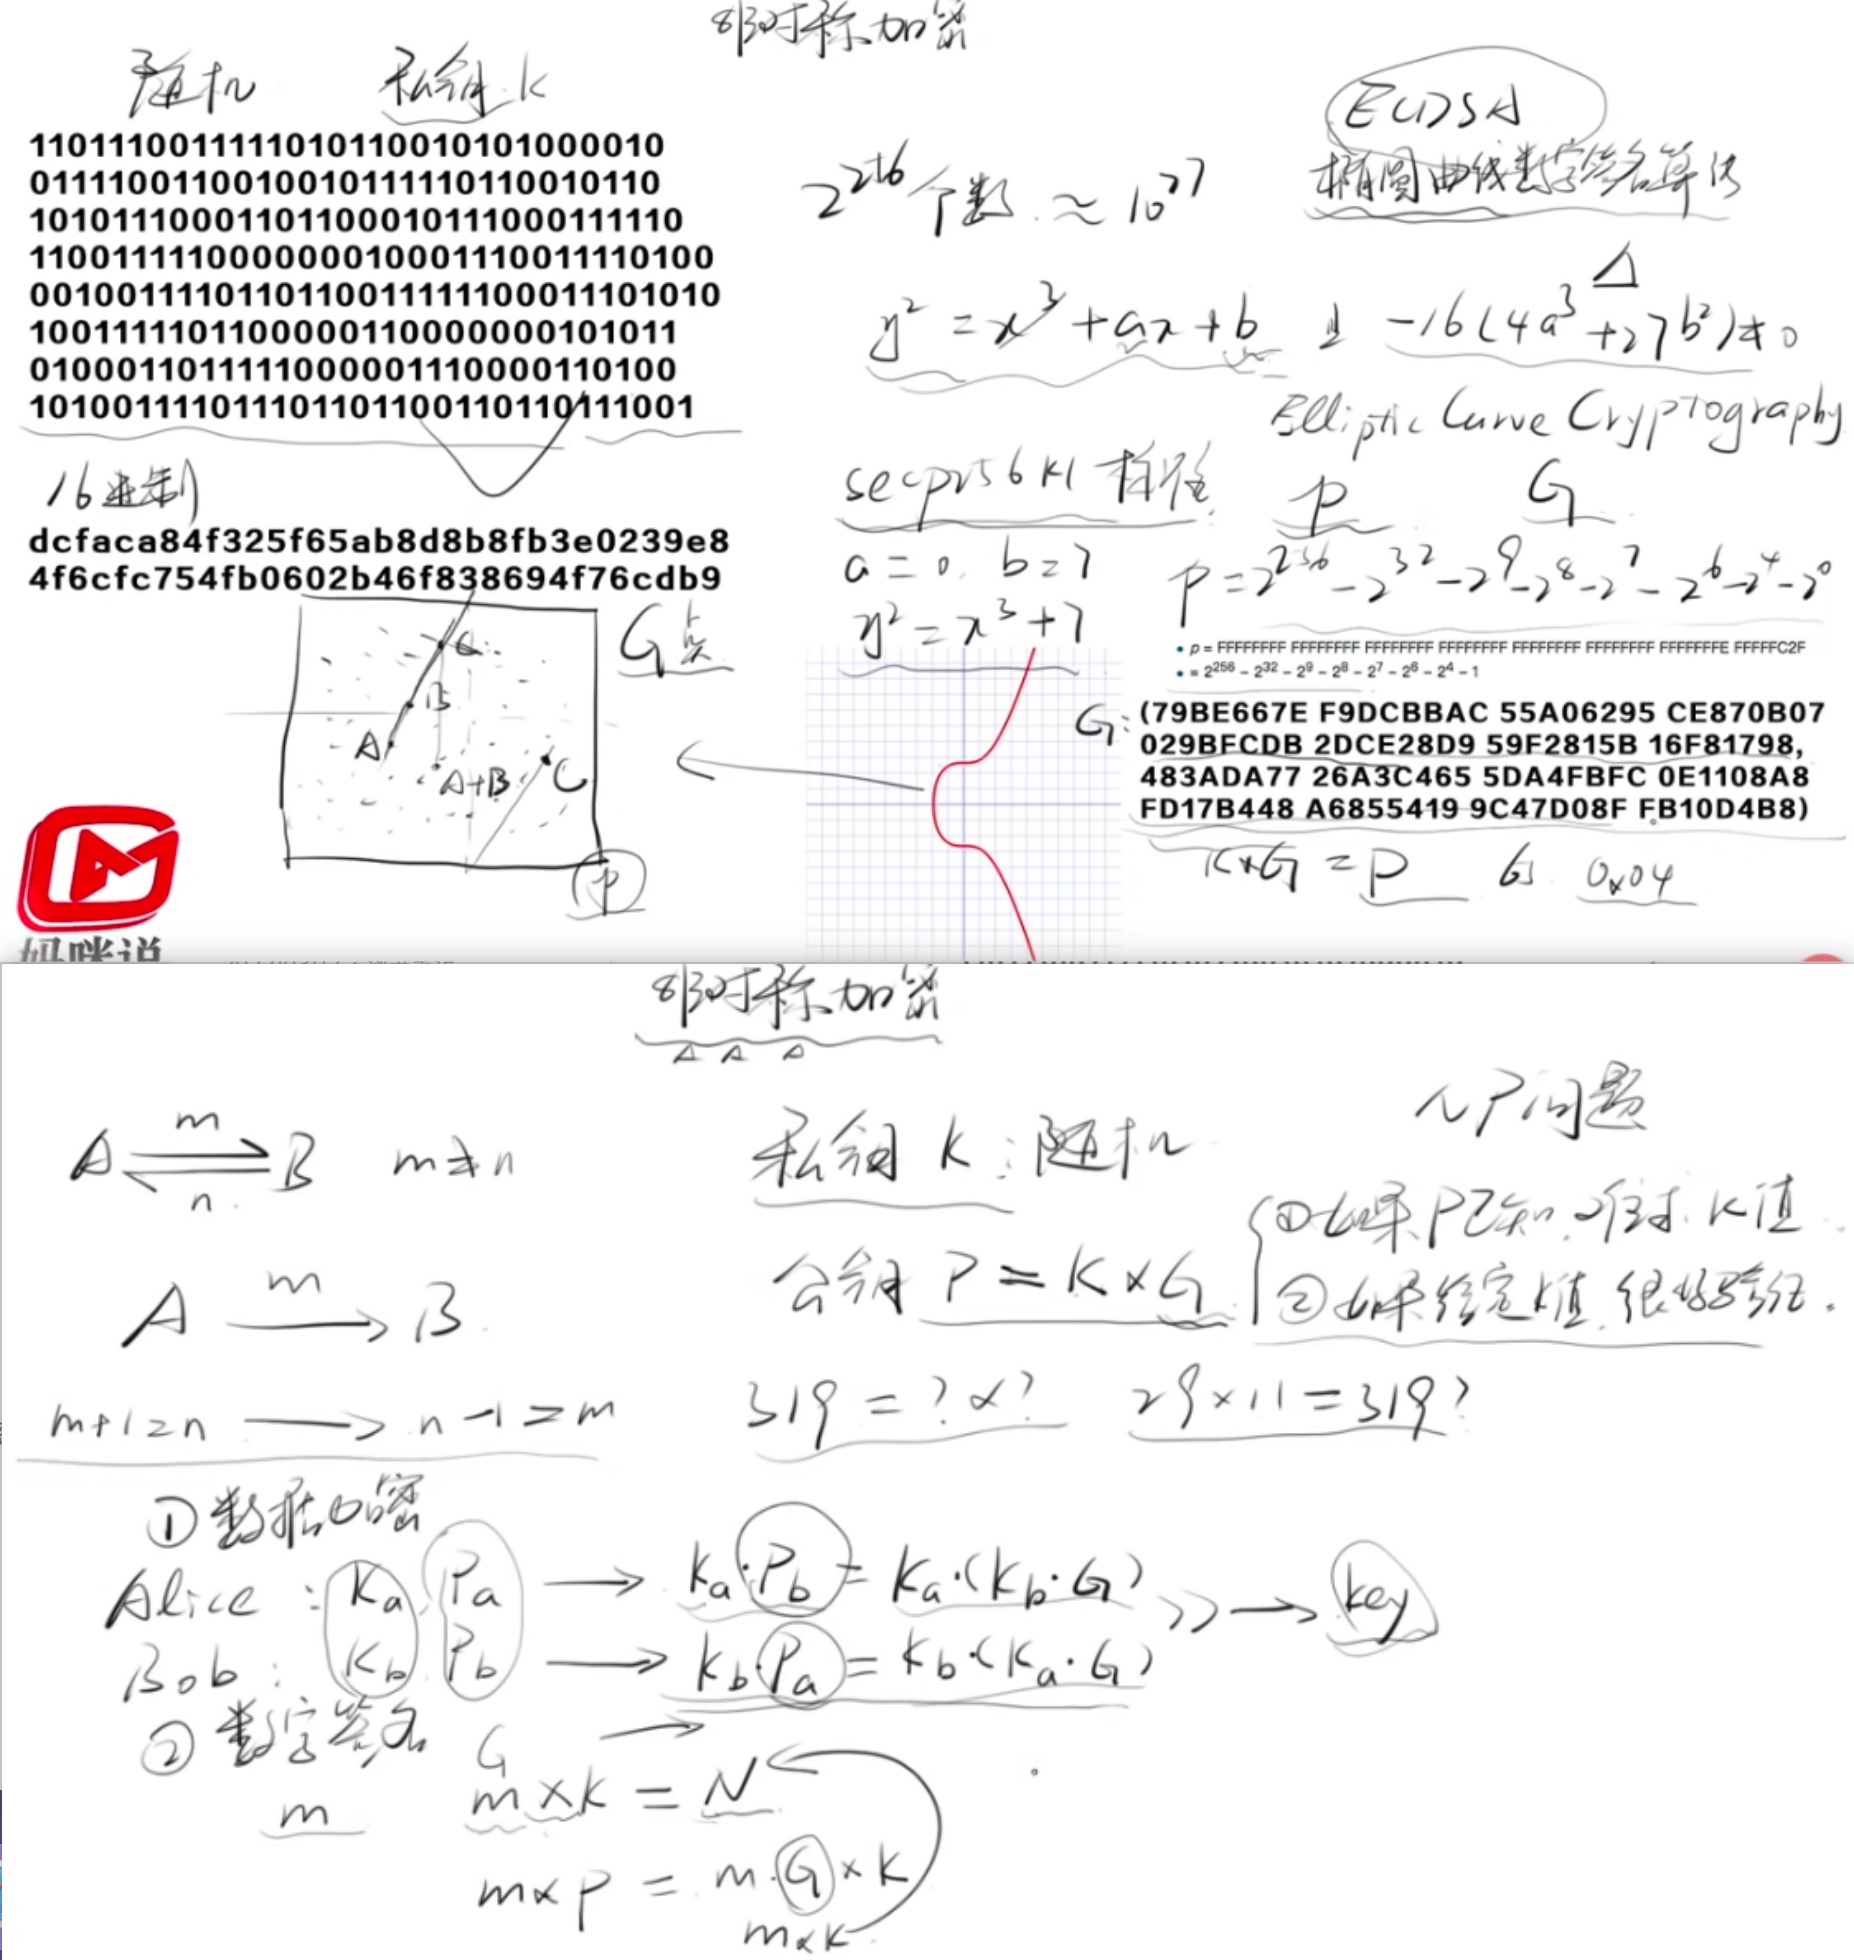 非对称加密
随机 私钥 k
1101110011111010110010101000010
0111100110010010111110110010110
10101110001101100010111000111110
1100111110000000010001110011110100
00100111101101100111111100011101010
10011111011000000110000000101011
0100011011111100000111000011010​0
10100111101110110110011011011​1001
16进制
dcfaca84f325f65ab8d8b8fb3e0239e8
4f6cfc754fb0602b46f838694f76cdb9
G点
C
B
A
A+B
C
p
妈咪说
ECDSA
椭圆曲线数字签名算法
2^256个数 ≈ 10^77
Δ
y² = x³ + ax + b 且 -16(4a³ + 27b²) ≠ 0
Elliptic Curve Cryptography
secp256k1 标准 p G
a = 0, b = 7
y² = x³ + 7
p = 2^256 - 2^32 - 2^9 - 2^8 - 2^7 - 2^6 - 2^4 - 2^0
• p = FFFFFFFF FFFFFFFF FFFFFFFF FFFFFFFF FFFFFFFF FFFFFFFF FFFFFFFE FFFFFC2F
• = 2^256 – 2^32 – 2^9 – 2^8 – 2^7 – 2^6 – 2^4 – 1
G: (79BE667E F9DCBBAC 55A06295 CE870B07
029BFCDB 2DCE28D9 59F2815B 16F81798,
483ADA77 26A3C465 5DA4FBFC 0E1108A8
FD17B448 A6855419 9C47D08F FB10D4B8)
K×G = P 0x04
非对称加密
A m B m ≠ n
n
A m → B
m+1=n → n-1=m
私钥 K : 随机
公钥 P = K × G
NP问题
① 如果P已知, 难求 K值
② 如果给定k值, 很好验证.
319 = ? × ? 29 × 11 = 319 ?
① 数据加密
Alice : Ka, Pa → Ka·Pb = Ka·(Kb·G)
Bob : Kb, Pb → Kb·Pa = Kb·(Ka·G)
→ key
② 数字签名
G
m m × K = N
m × P = m·G × K
m × K